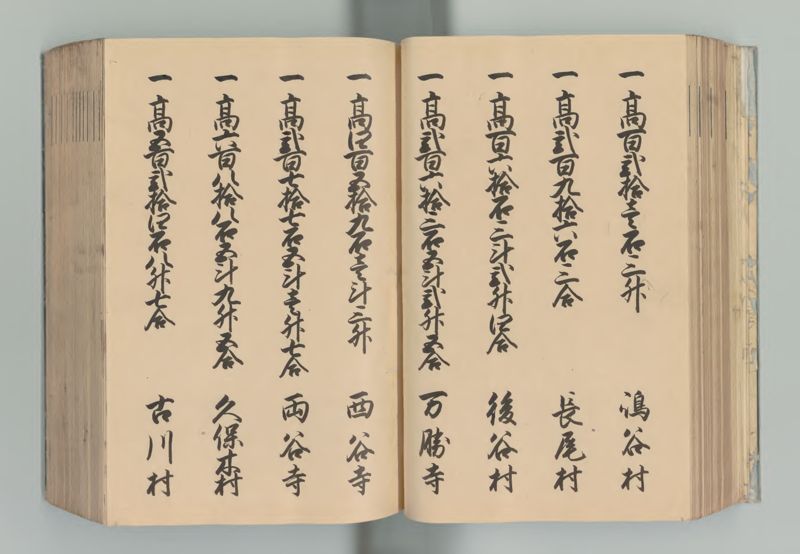 一 高百弐拾壱石三升 鴻谷村
一 高弐百九拾六石三合 長尾村
一 高百六拾石三斗弐升四合 後谷村
一 高弐百六拾三石五斗弐升五合 万勝寺
一 高四百五拾九石壱斗三升 西谷寺
一 高弐百七拾七石五斗壱升七合 両谷寺
一 高六百八拾八石五斗九升五合 久保本村
一 高五百弐拾四石八升七合 古川村